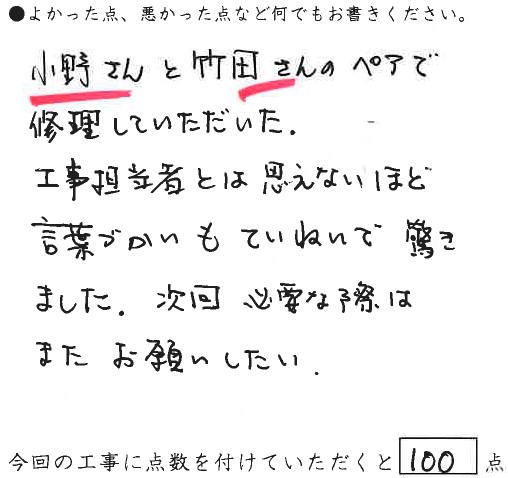 ●よかった点、悪かった点など何でもお書きください。
小野さんと竹田さんのペアで
修理していただいた.
工事担当者とは思えないほど
言葉づかいもていねいで驚き
ました. 次回必要な際は
またお願いしたい.
今回の工事に点数を付けていただくと 100 点